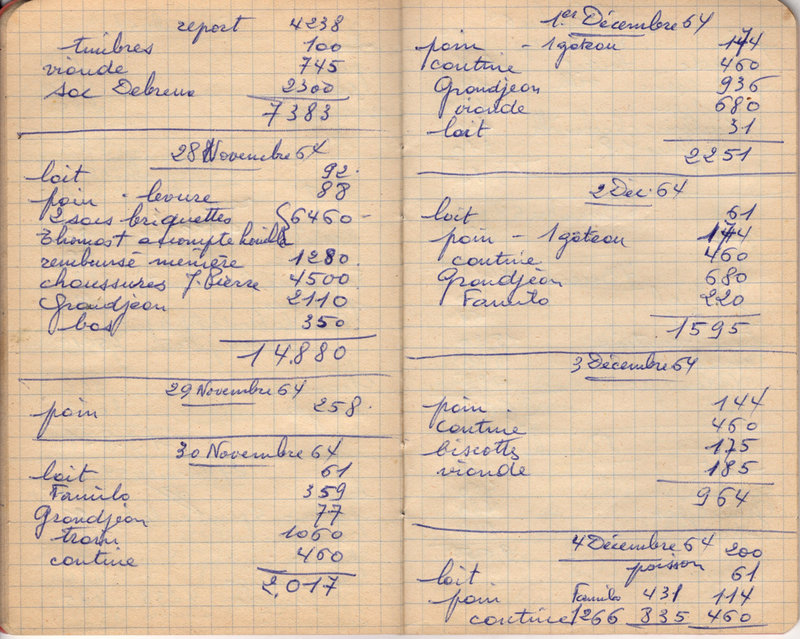 report 4238
timbres 100
viande 745
sac 2300
7383
28 Novembre 64
lait 92.
pain - levure 88
2 sacs briquettes 6460 -
acompte
remboursé mémère 1280.
chaussures J. Pierre 4500
Grandjean 2110
bas 350
14.880
29 Novembre 64
pain 258.
30 Novembre 64
lait 61
Familo 359
Grandjean 77
train 1060
cantine 460
2,017
1er Décembre 64
pain - 1 gâteau 144
cantine 460
Grandjean 936
viande 680
lait 31
2251
2 Déc. 64
lait 61
pain - 1 gâteau 174
cantine 460
Grandjean 680
Familo 220
1595
3 Décembre 64
pain 144
cantine 460
biscottes 175
viande 185
964
4 Décembre 64
poisson 200
lait 61
pain Familo 431 114
cantine 1266 835 460